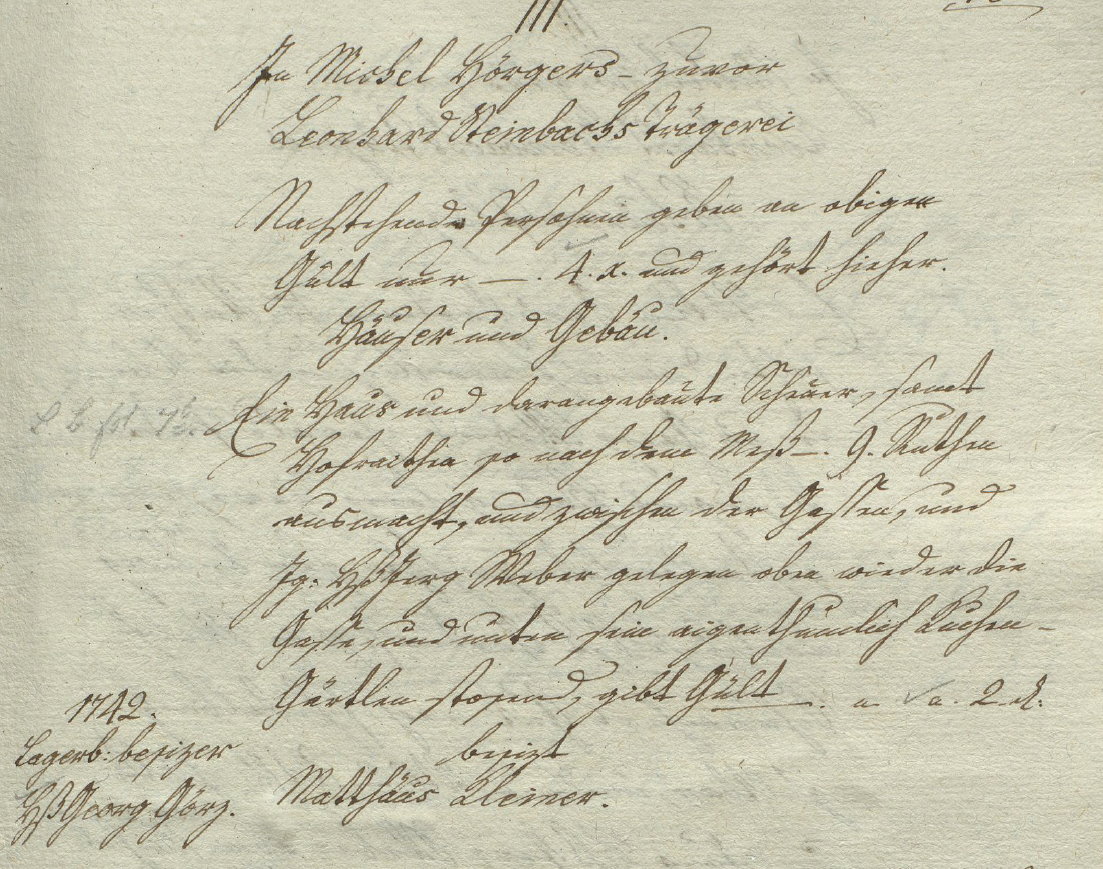 III
In Michel Hörgers - zuvor
Leonhard Steinbachs Trägerei
Nachstehende Persohnen geben an obiger
Gült nur —. 4. x. und gehört hieher.
Häuser und Gebäu.
Ein Haus und darangebaute Scheuer, samt
Hofraithin so nach dem Meß —. 9. Ruthen
ausmacht, und zwischen der Gassen, und
Jg: Hß Jerg Weber gelegen oben wieder die
Gasse, und unten sein eigenthümlich Kuchen-
Gärtlen stosend, gibt Gült —. 2
1742.
Lagerb: besizer
Hß Georg Görz.
besizt
Matthäus Kleiner.
L b fol. 75.